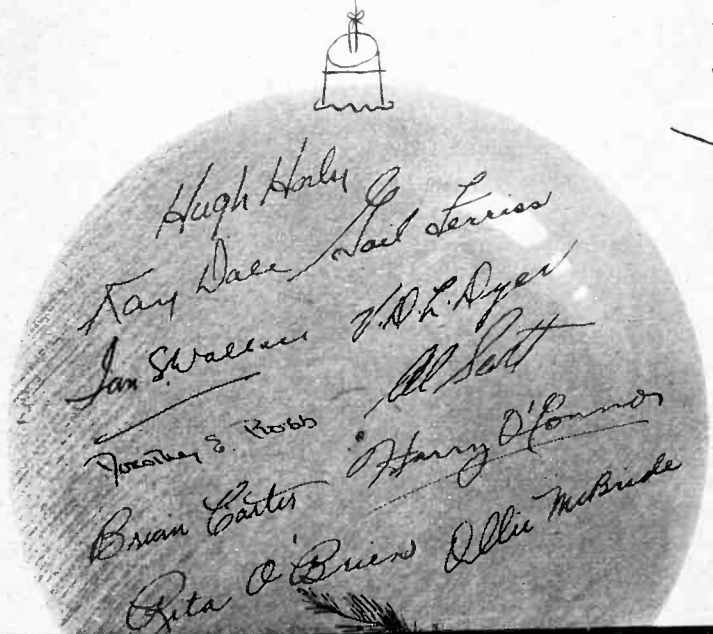 Hugh
Kay Dale Gail Ferriss
Ian S. Wallace V.D.L. Dyer
Dorothy E. Robb Al Scott
Brian Carter Harry O'Connor
Rita O'Brien Ollie McBride